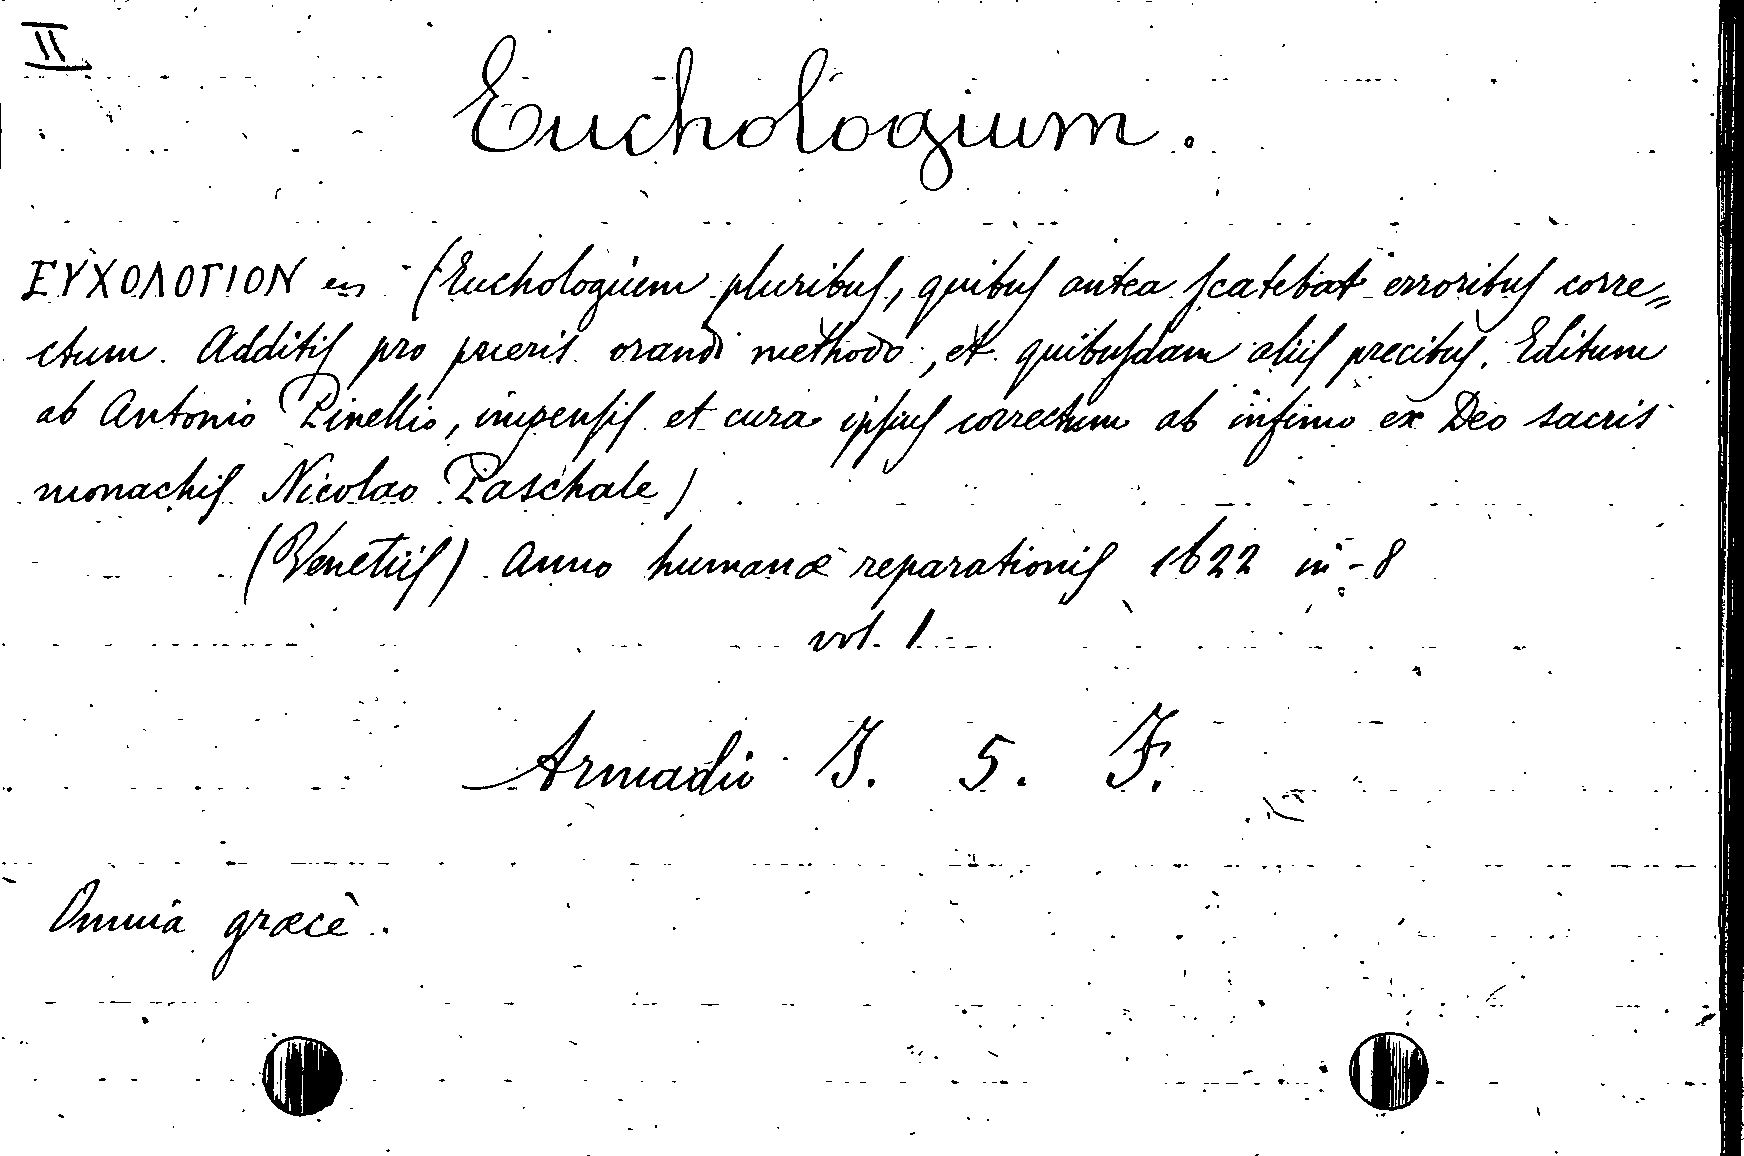 II
Euchologium.
ΕΥΧΟΛΟΓΙΟΝ en (Euchologium pluribus, quibus antea scatebat erroribus corre=
ctum. Additis pro pueris orandi methodo, et quibusdam aliis precibus. Editum
ab Antonio Pinellio, impensis et cura ipsius correctum ab infimo ex Deo sacris
monachis Nicolao Paschale)
(Venetiis) Anno humanæ reparationis 1622 in-8
vol. 1
Armadio I. 5. F.
Omnia græcè.